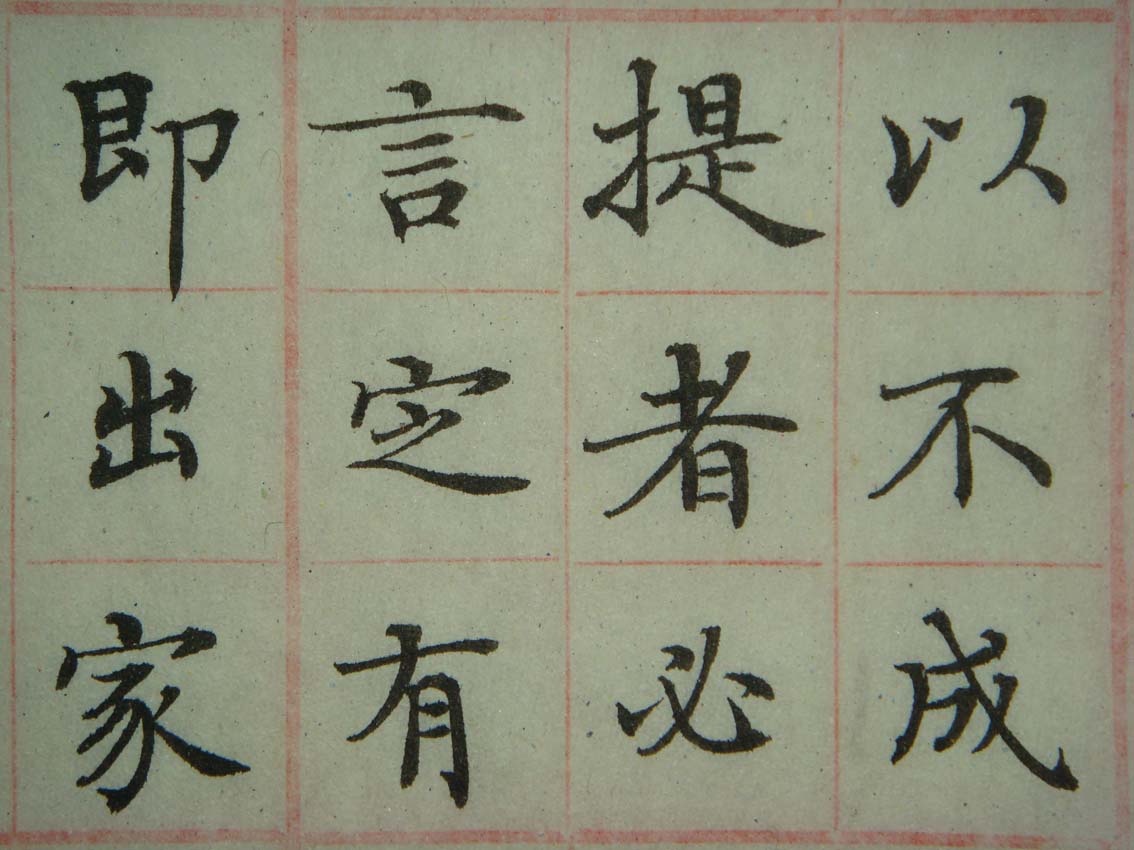 以不成
提者必
言定有
即出家